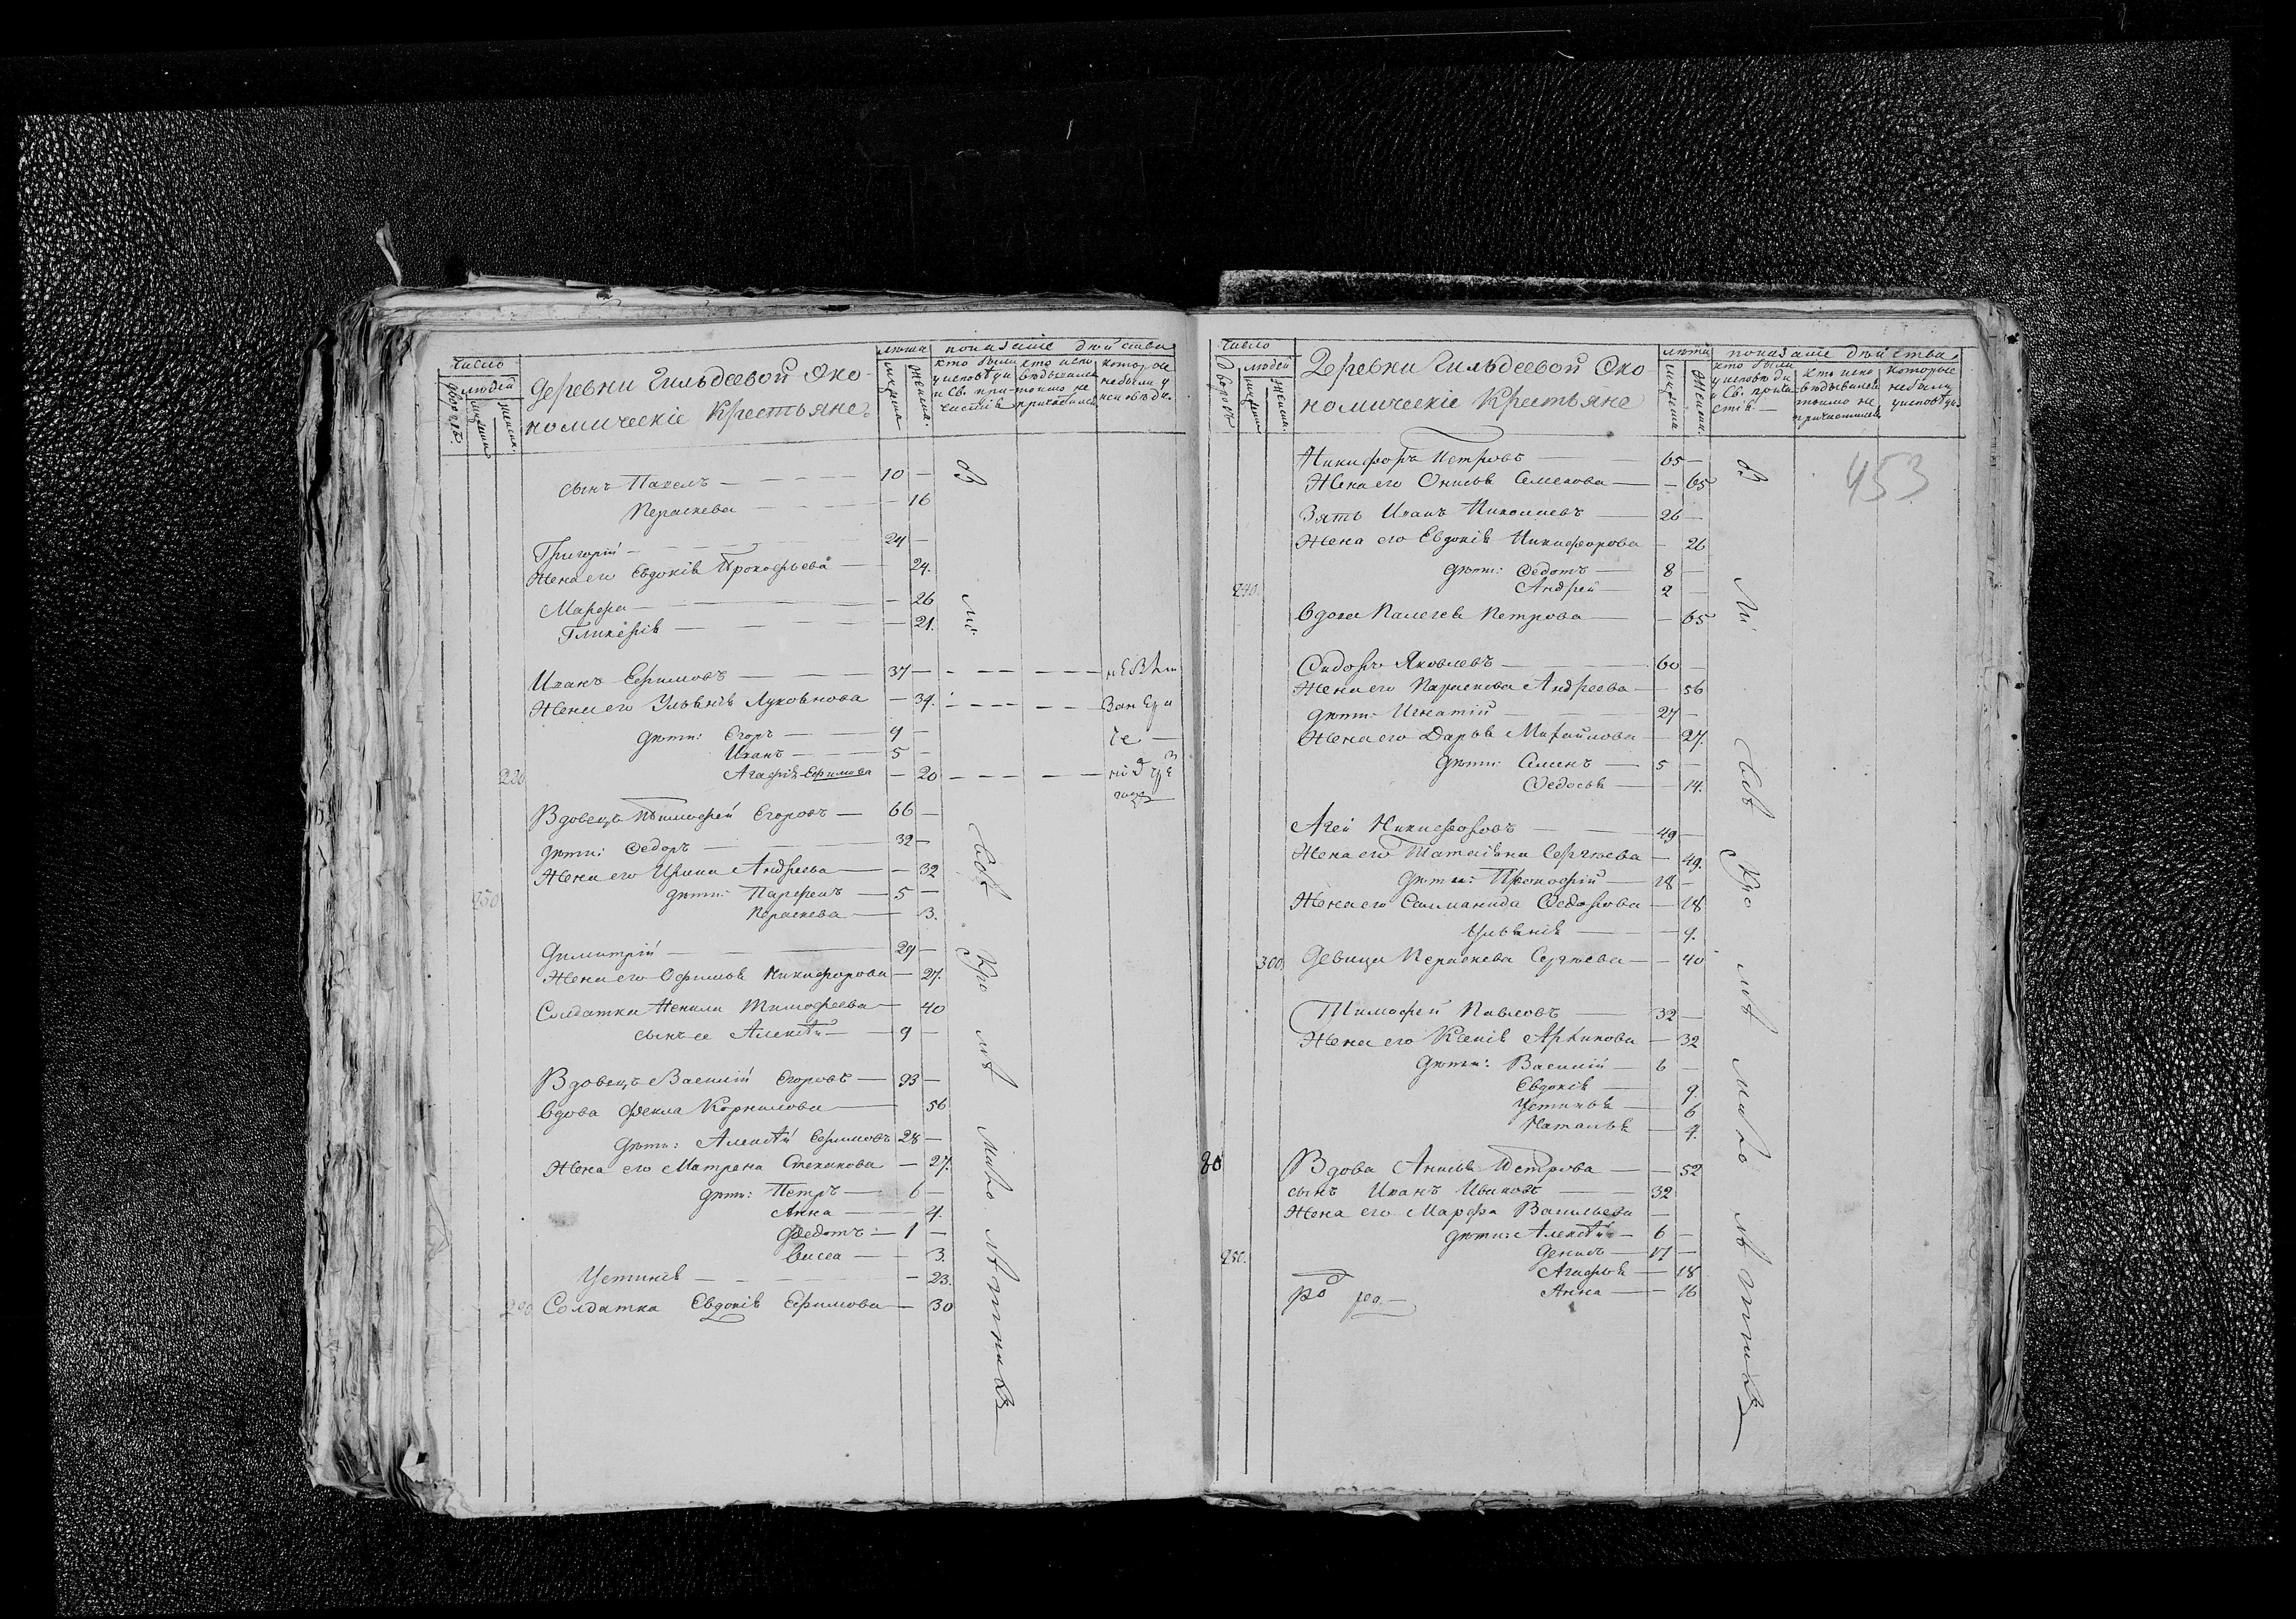 число
людей
дворовъ
мужеска
женска.
Деревни Гильдеевой Эко-
номическіе Крестьяне
лѣта
мужеска
женска.
показаніе дѣйства
кто были
у исповѣди
и св. при-
частія
кто испо
вѣдывался
токмо не
причастился
которые
небыли у
исповѣди.
сынъ Павелъ — 10 —
Параскева — 16
Григорій — 24 —
Жена его Евдокія Прокофьева — 24.
Марфа — 26
Гликерія — 21.
Иванъ Ефимовъ — 37 —
Жена его Ульянія — 37.
дѣти: Егоръ — 9 —
Иванъ — 5 —
220 Агафія Ефимова — 20
Вдовецъ Тимофей Егоровъ — 66 —
дѣти: Федоръ — 32 —
Жена его Ирина Андреева — 32
250 дѣти: Парфенъ — 5 —
Параскева — 3.
Димитрій — 29 —
Жена его Офимья Никифорова — 27.
Солдатка Ненила Тимофеева — 40
сынъ ее Алексѣй — 9 —
Вдовецъ Василій Егоровъ — 93 —
Вдова Фекла Корнилова — 56
дѣти: Алексѣй Ефимовъ 28 —
Жена его Матрена Степанова — 27.
дѣти: Петръ — 6 —
Анна — 4.
Федотъ — 1 —
Васса — 3.
Устинія — 23.
290 Солдатка Евдокія Ефимова — 30
число
людей
дворовъ
мужеска
женска.
Деревни Гильдеевой Эко
номическіе Крестьяне
лѣта
мужеска
женска.
показаніе дѣйства
кто были
у исповѣди
и св. прича
стія. —
кто испо
вѣдывался
токмо не
причастился
которые
небыли
у исповѣди.
453
Никифоръ Петровъ — 65 —
Жена его Онисья Семенова — 65
Зять Иванъ Николаевъ — 26 —
Жена его Евдокія Никифорова — 26
дѣти: Федотъ — 8 —
240 Андрей — 2 —
Вдова Палагея Петрова — 65
Сидоръ Яковлевъ — 60 —
Жена его Параскева Андреева — 56
дѣти: Игнатій — 27 —
Жена его Дарья Михайлова — 27.
дѣти: Семенъ — 5 —
Федосья — 14.
Агей Никифоровъ — 49 —
Жена его Татьяна Сергѣева — 49.
дѣти: Прокофій — 18 —
Жена его Саламанида Федорова — 18
Ульянія — 9.
300 Девица Параскева Сергѣева — 40
Тимофей Павловъ — 32 —
Жена его Ксенія Архипова — 32
дѣти: Василій — 6 —
Евдокія — 9.
Устинья — 6
Наталья — 4.
80 Вдова Анисья Петрова — 52
сынъ Иванъ Ивановъ — 32
Жена его Марфа Васильева —
дѣти: Алексѣй — 6 —
250. Денисъ — 17 —
Агафья — 18
Анна — 16